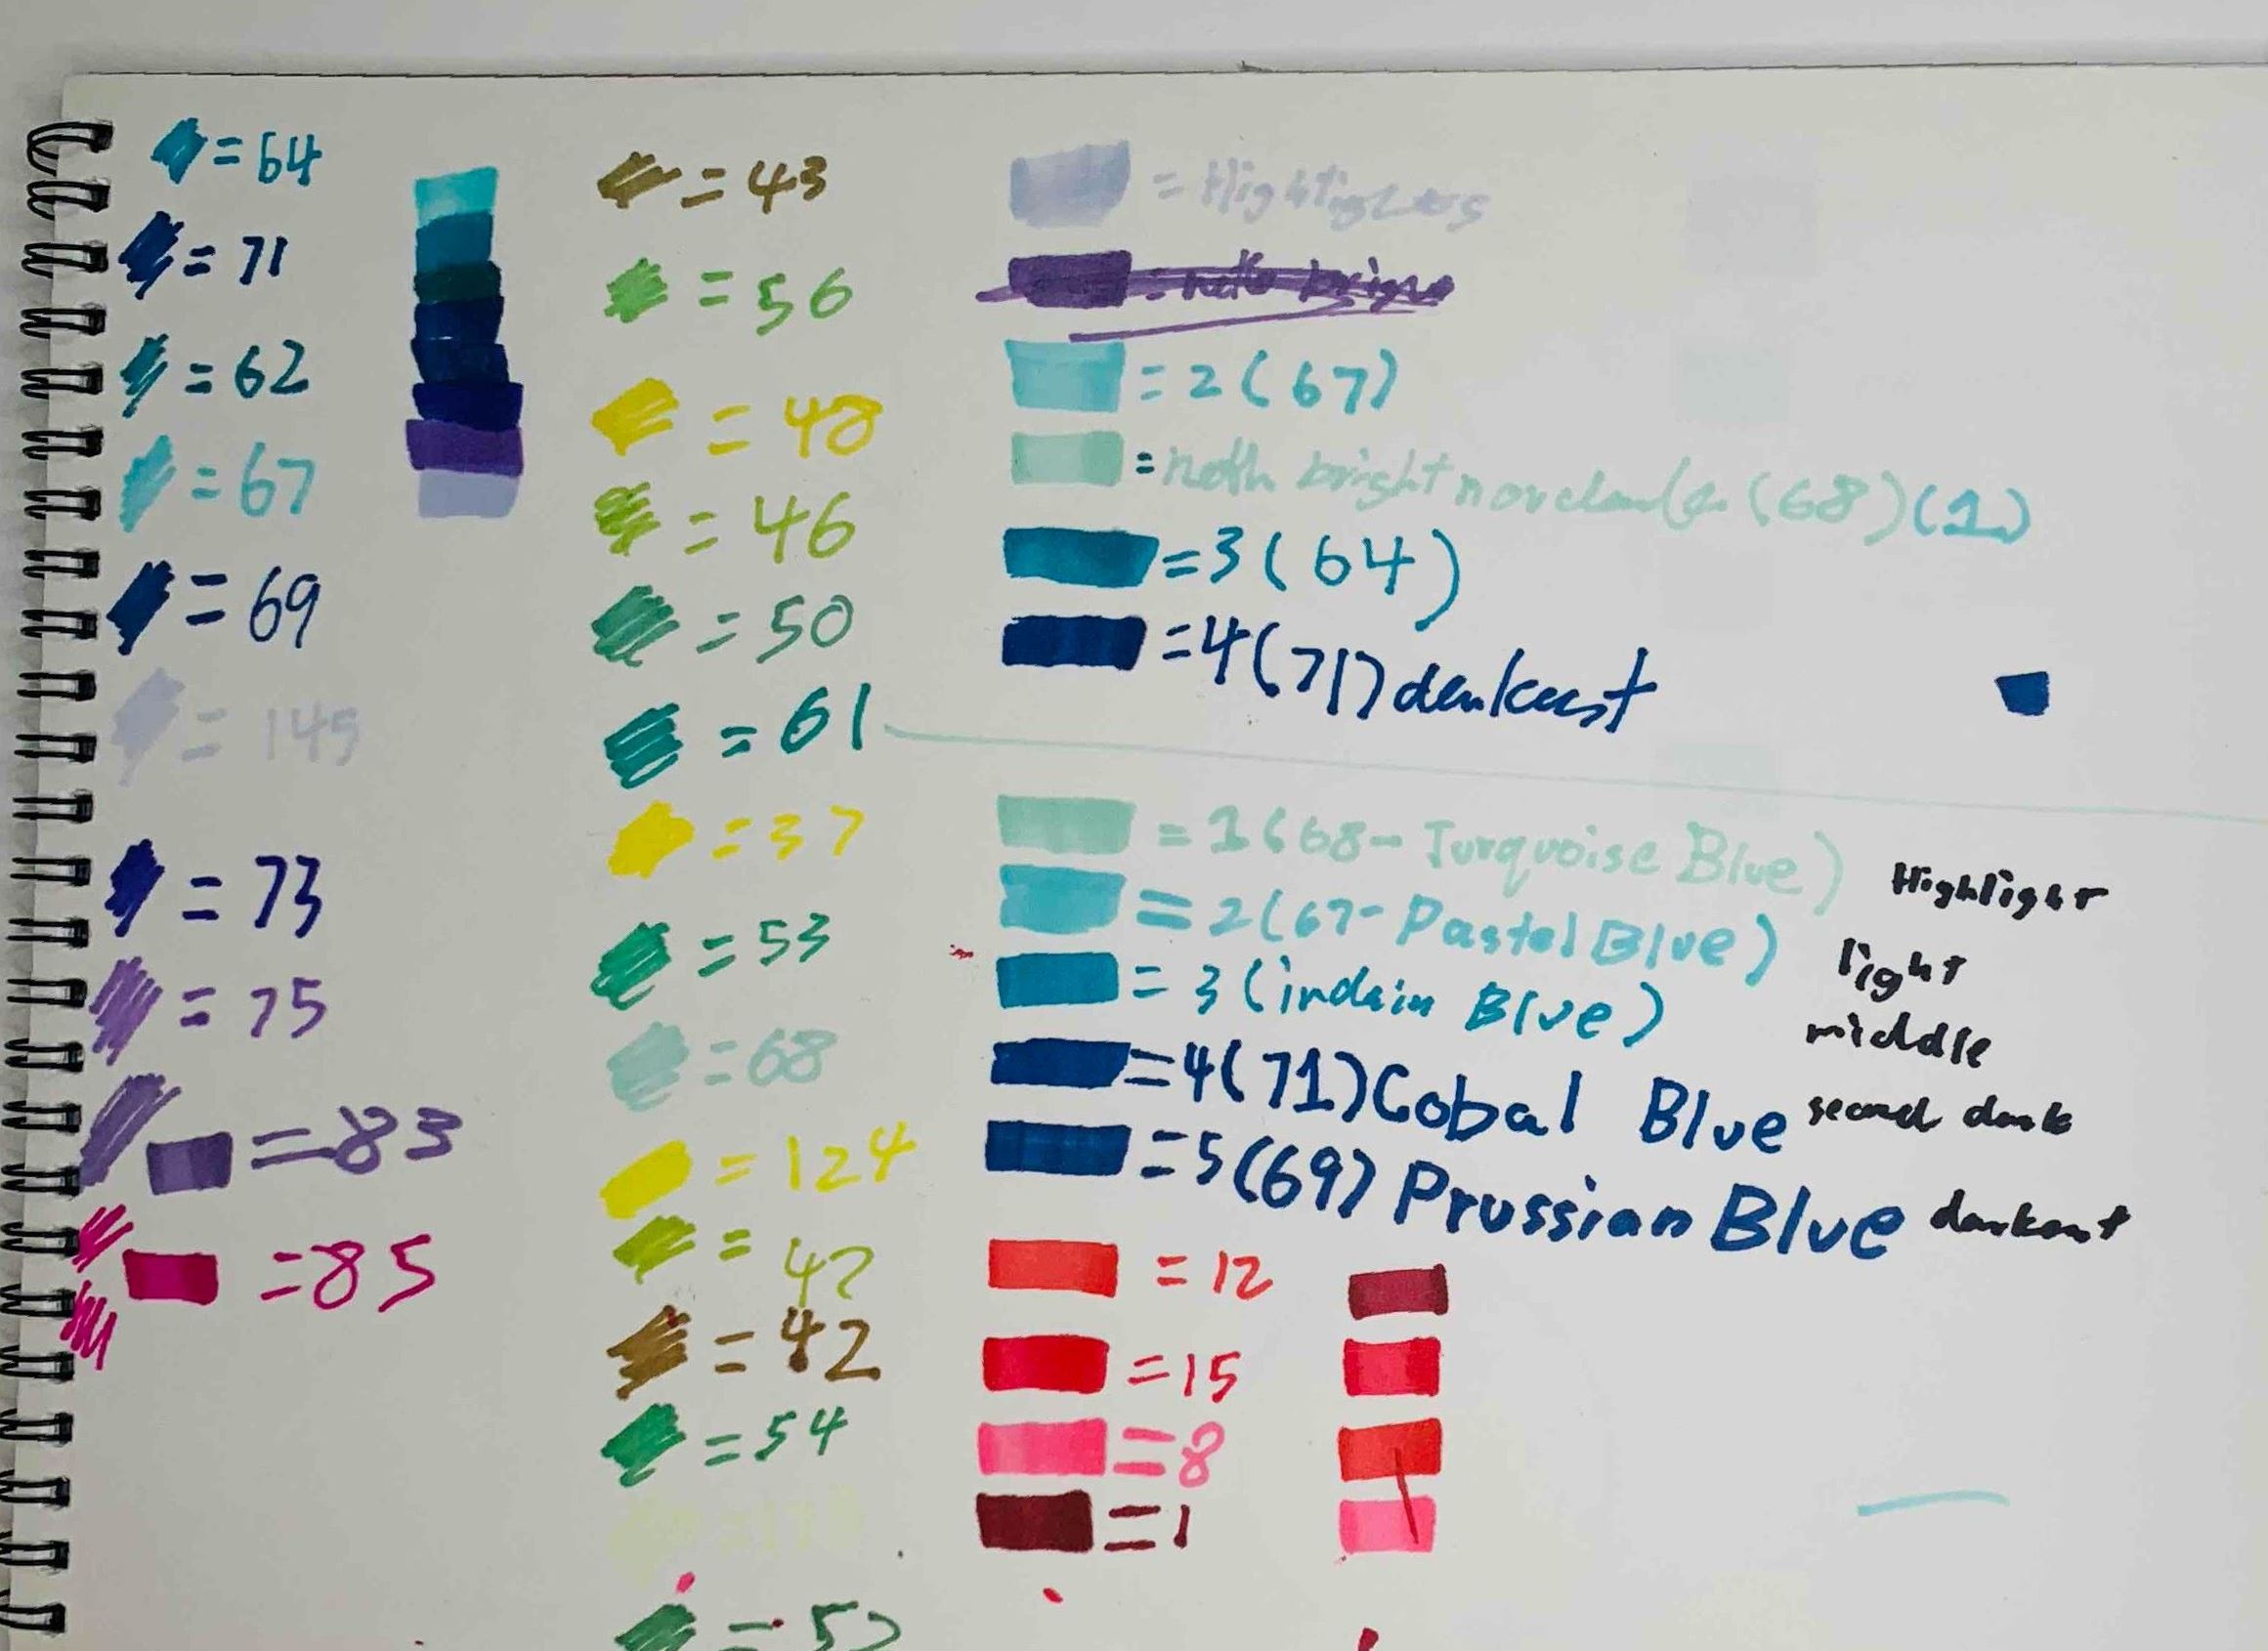 = 64
= 71
= 62
= 67
= 69
= 145
= 73
= 75
= 83
= 85
= 43
= 56
= 48
= 46
= 50
= 61
= 37
= 53
= 68
= 124
= 47
= 42
= 54
=
= 2 (67)
= noth bright nor (68) (1)
= 3 (64)
= 4 (71) darkest
= 1 (68 - Turquoise Blue) Highlight
= 2 (67 - Pastel Blue) light
= 3 (indain Blue) middle
= 4 (71) Cobal Blue second dark
= 5 (69) Prussian Blue darkest
= 12
= 15
= 8
= 1